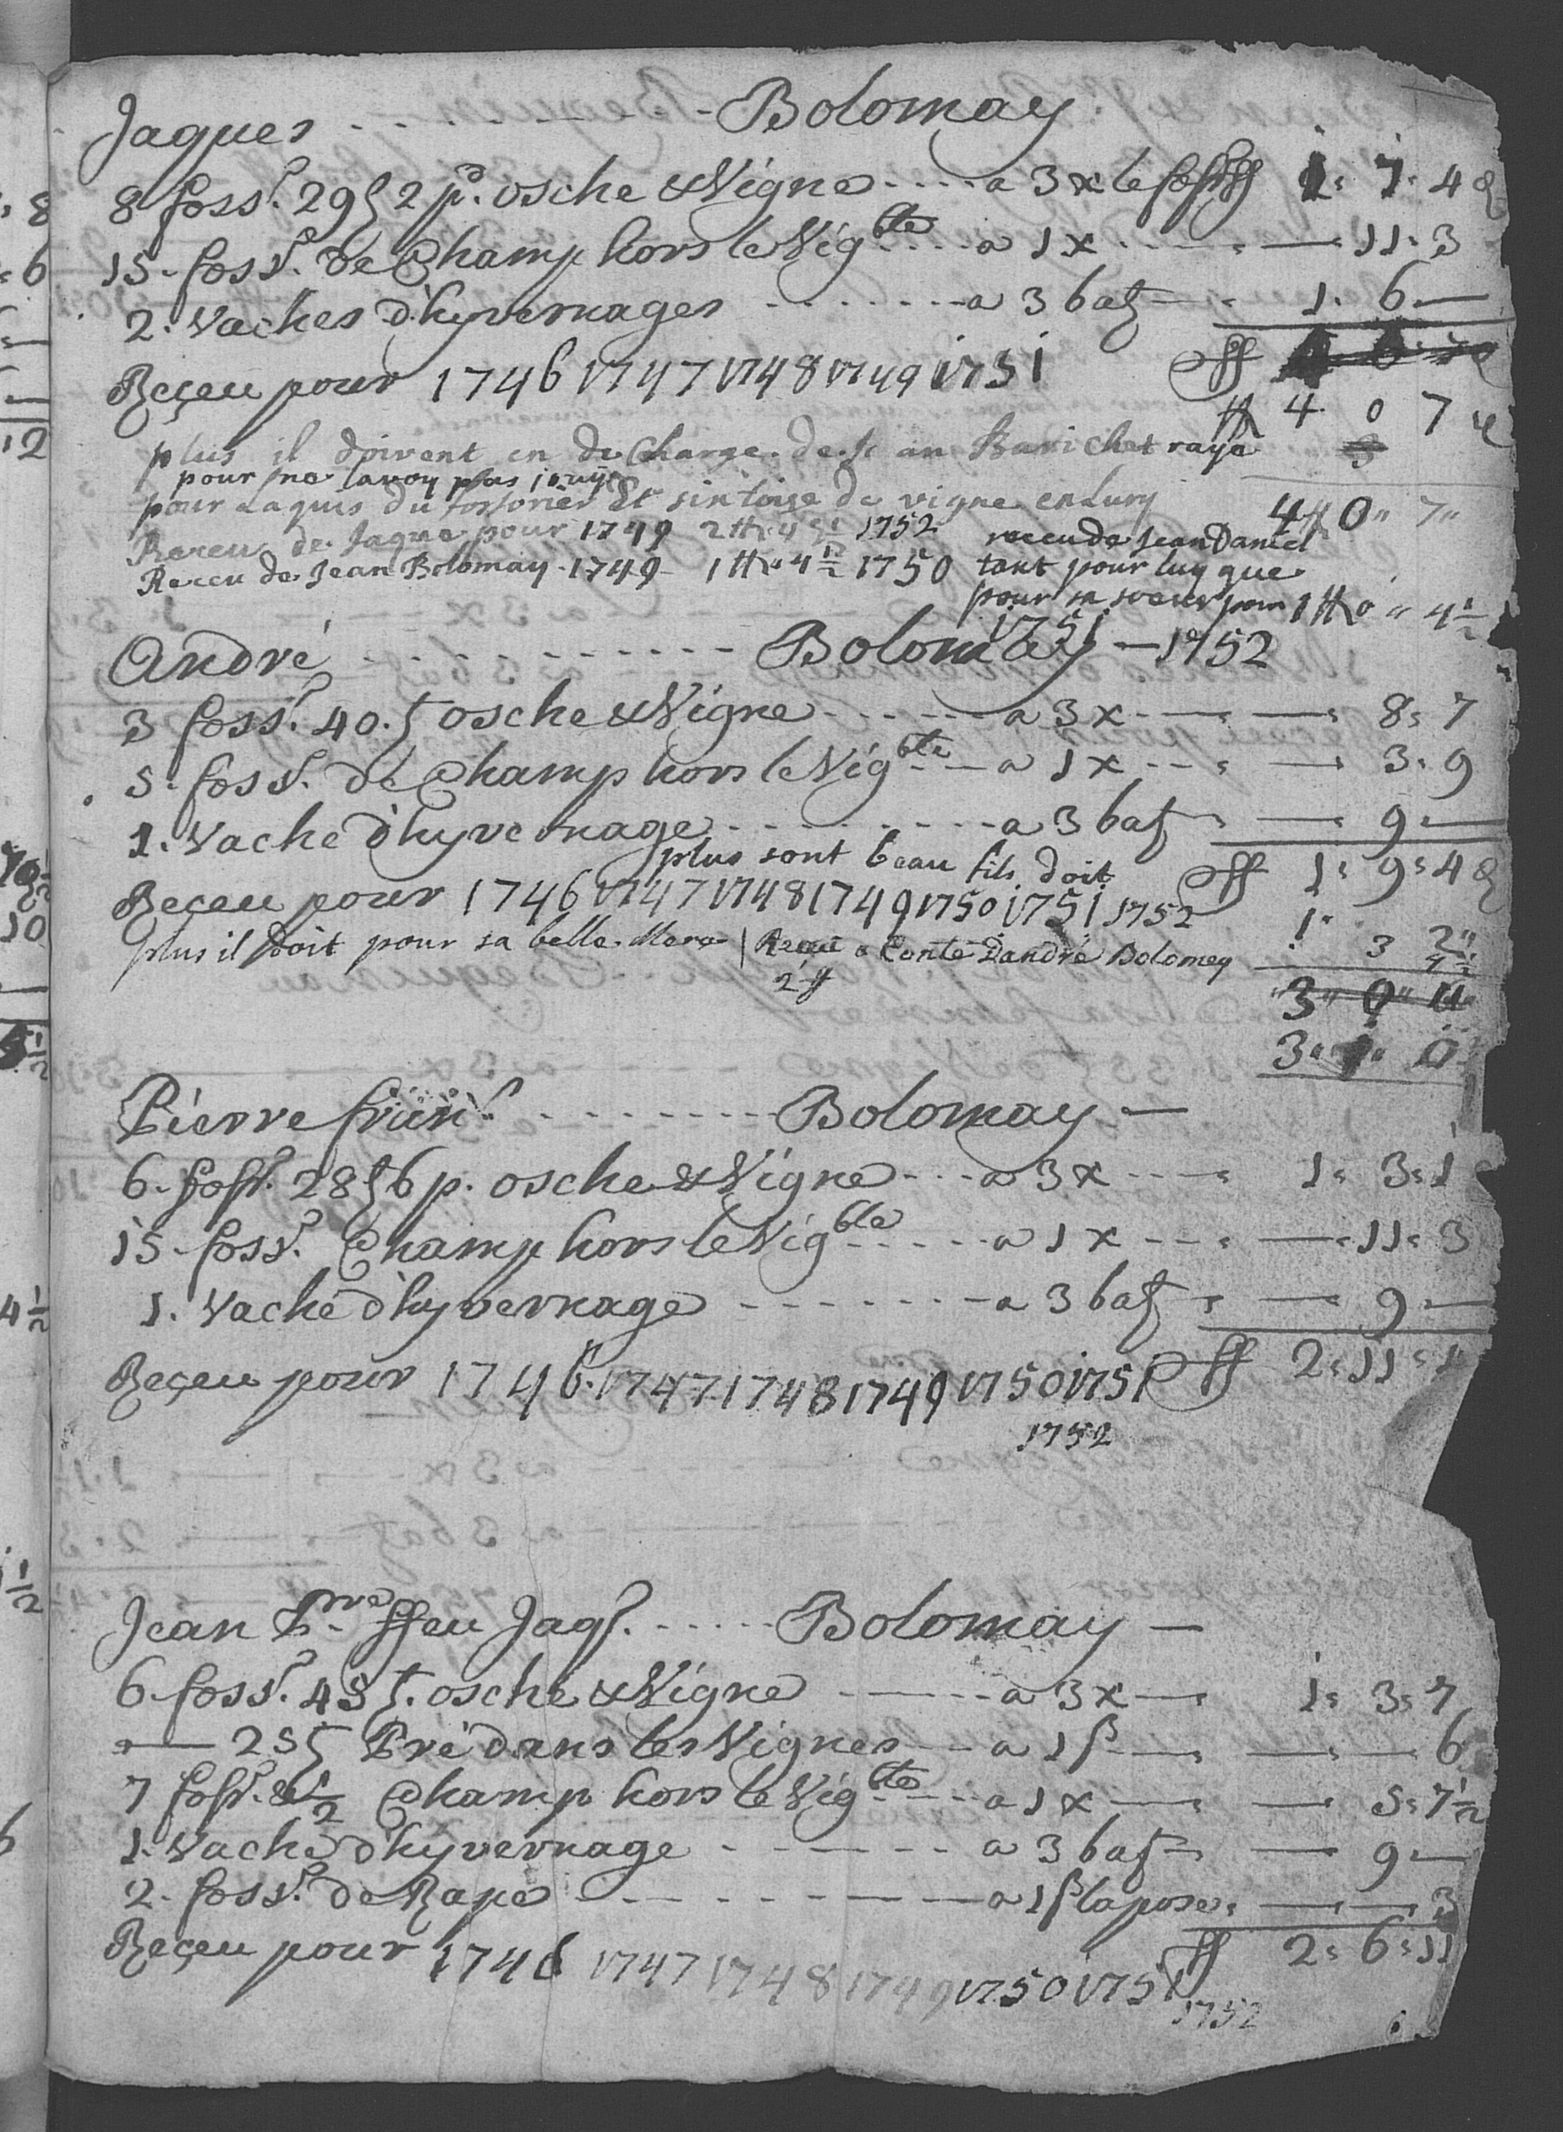 Jaques - - - - - - - - - Bolomay
8 foss.r 29 ʒ 2 p.d osche & Vigne - - - - a 3 x le foss.r 1: 7: 4
15. foss.r de Champ hors le Vig.ble - - - a 1 x - - - - 11: 3
2. Vaches d'hyvernages - - - - - - a 3 batz - 1. 6. —
Reçeu pour 1746 1747 1748 1749 1751 ff
ff 4 0 7
plus il doivent en de Charge de Je an Barichet rayé 3
pour ne lavoy pas jouye
pour Laquis du et sin toise de vigne en Lury 4 ff 0" 7"
Receu de Jaque pour 1749 2 ff 4 1752 reccu de Jean Daniel
Reccu de Jean Bolomay 1749 1 ff 4 1/2 1750 tant pour luy que
pour sa soeur pour 1 ff 0 " 4 1/2
1751
André - - - - - - - - - Bolomay — 1752
3 foss.r 40. ʒ osche & Vigne - - - - - a 3 x - - — 8: 7
5. foss.r de Champ hors le Vig.ble - - a 1 x - - - — 3: 9
1. Vache d'hyvernage - - - - - - - a 3 batz - — 9 —
plus sont beau fils doit ff 1: 9: 4
Reçeu pour 1746 1747 1748 1749 1750 1751 1752 1"
plus il doit pour sa belle Mere | Reçu a Conte Dandré Bolomey 3
2 ff
3" 0" 11"
3"
Pierre fran.s - - - - - - - Bolomay —
6. foss.r 28 ʒ 6 p. osche & Vigne - - - a 3 x - - - - 1: 3: 1
15. foss.r Champ hors le Vig.ble - - - - a 1 x - - - - 11: 3
1. Vache d'hyvernage - - - - - - - a 3 batz - — 9 —
Reçeu pour 1746. 1747 1748 1749 1750 1751 ff 2: 11:
1752
Jean P.rre ffeu Jaq.s - - - - - Bolomay —
6. foss.r 45 ʒ. osche & Vigne - - - - a 3 x — 1: 3: 7
— 25 ʒ Pré dans les Vignes - - a 1 s — — 6
7 foss.r & 1/2 Champ hors le Vig.ble - - - a 1 x — — 5: 7 1/2
1. Vache d'hyvernage - - - - - - a 3 batz - — 9 —
2. foss.r de Rape - - - - - - - a 1 s la pose - — 3
Reçeu pour 1746 1747 1748 1749 1750 1751 ff 2: 6: 11
1752